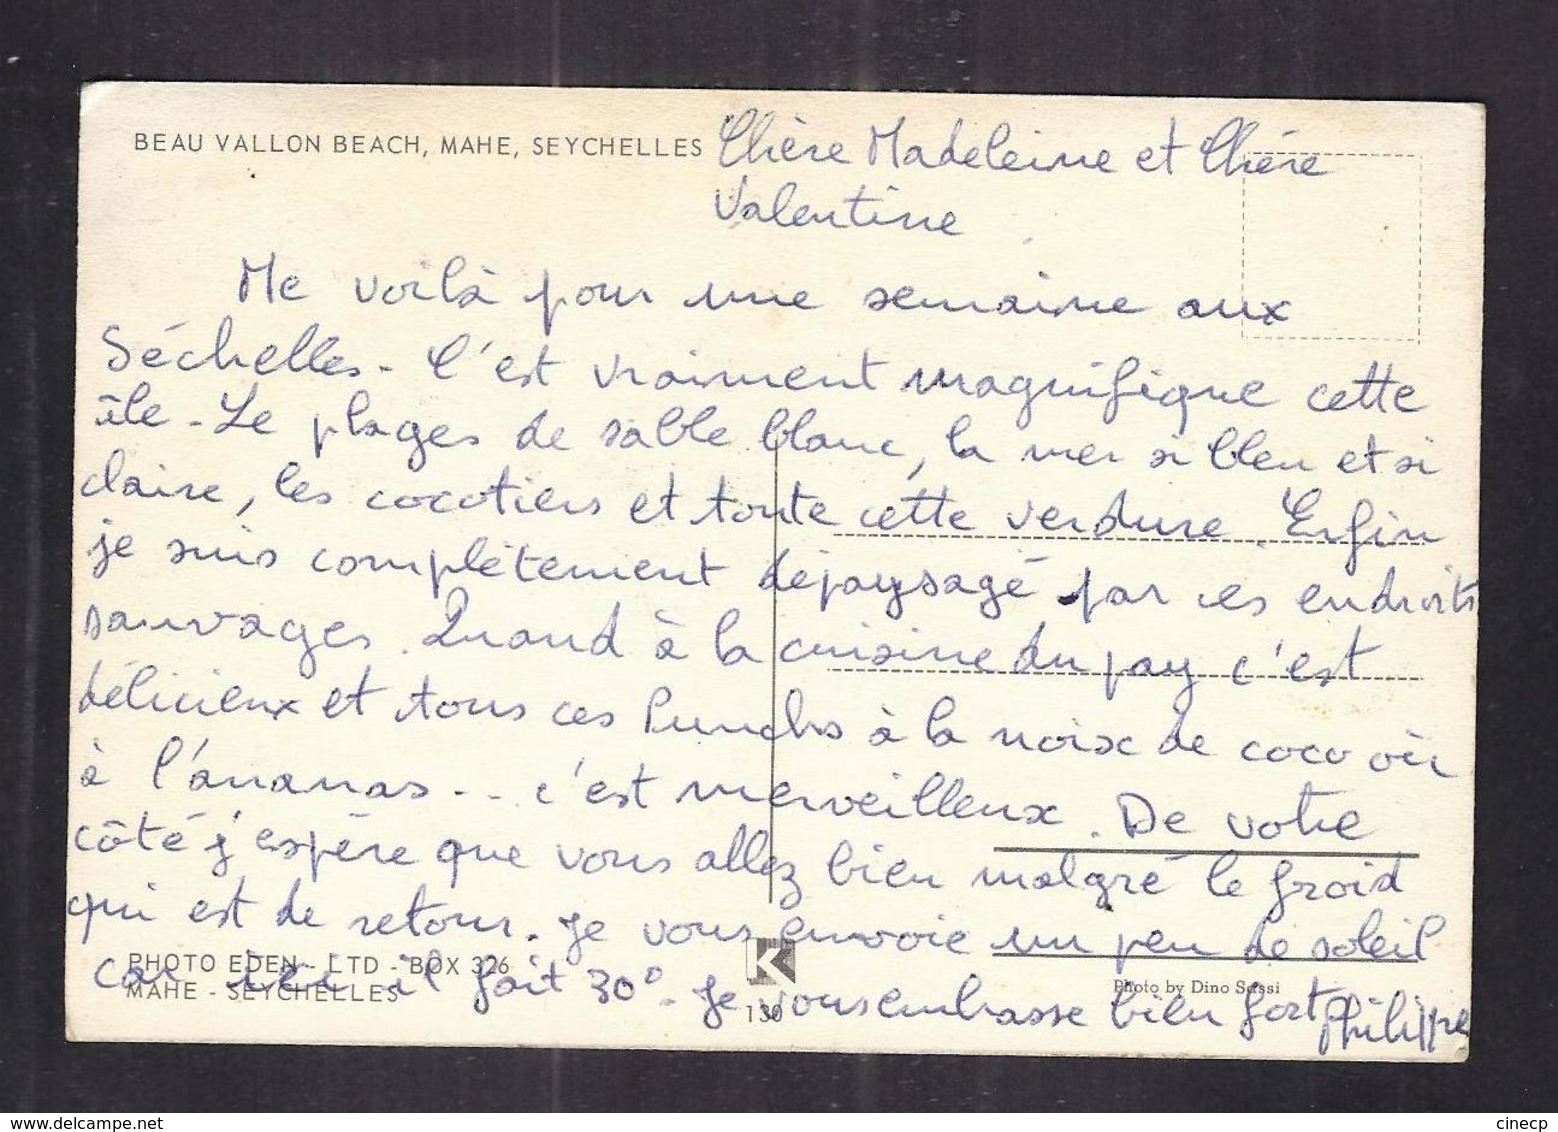 BEAU VALLON BEACH, MAHE, SEYCHELLES
Chère Madeleine et Chère
Valentine
Me voilà pour une semaine aux
Séchelles. C'est vraiment magnifique cette
île. Le plages de sable blanc, la mer si bleu et si
claire, les cocotiers et toute cette verdure. Enfin
je suis complètement dépaysagé par ces endroits
sauvages. Quand à la cuisine du pay c'est
délicieux et tous ces Punchs à la noix de coco où
à l'ananas... c'est merveilleux. De votre
côté j'espère que vous allez bien malgré le froid
qui est de retour. Je vous envoie un peu de soleil
car ici il fait 30°. Je vous embrasse bien fort Philippe
PHOTO EDEN - LTD - BOX 326
MAHE - SEYCHELLES
K
130
Photo by Dino Sassi
cinecp